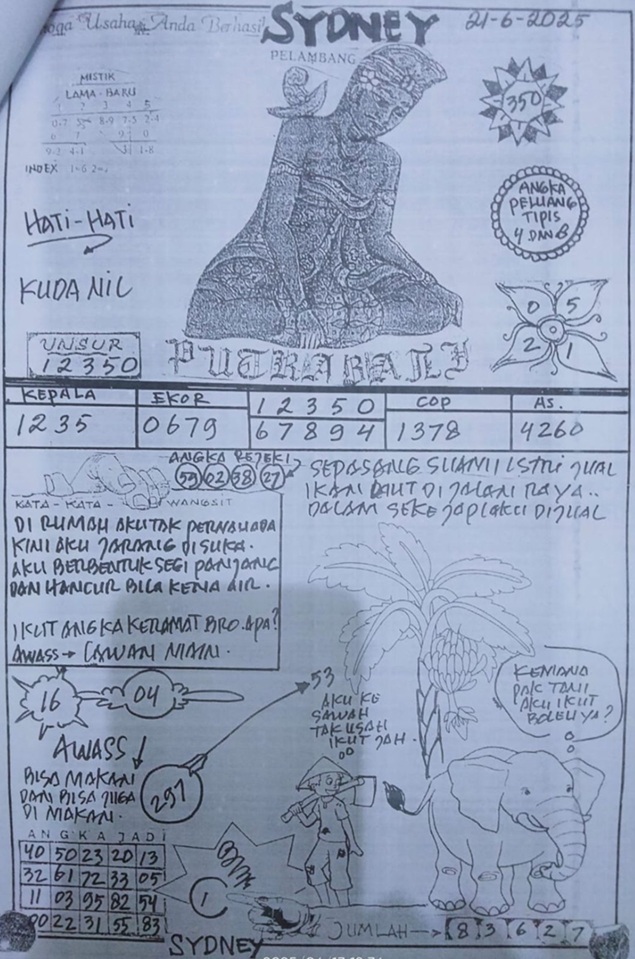 Usaha Anda Berhasil
SYDNEY
21-6-2025
PELAMBANG
MISTIK
LAMA - BARU
1 2 3 4 5
8-9 7-5 2-4
1-8
INDEX 1-6
350
ANGKA
PELUANG
TIPIS
4 DAN 8
HATI-HATI
KUDA NIL
UNSUR
12350
0 5
2 1
PUTRA BALI
KEPALA
1235
EKOR
0679
12350
67894
COP
1378
AS.
4260
ANGKA REJEKI
53 02 38 27
SEPASANG SUAMI ISTRI JUAL
IKAN LAUT DI JALAN RAYA..
DALAM SEKEJAP LAKU DIJUAL
KATA - KATA - WANGSIT
DI RUMAH AKU TAK PERNAH ADA
KINI AKU JARANG DISUKA.
AKU BERBENTUK SEGI PANJANG
DAN HANCUR BILA KENA AIR.
IKUT ANGKA KERAMAT BRO. APA?
AWASS → LAWAN MAIN.
16
04
53
AKU KE
SAWAH
TAK USAH
IKUT JAH.
KEMANA
PAK TANI
AKU IKUT
BOLEH YA?
AWASS
BISA MAKAN
DAN BISA JUGA
DI MAKAN.
297
ANGKA JADI
40 50 23 20 13
32 61 72 33 05
11 03 95 82 54
00 22 31 55 83
BM
1
JUMLAH → 8 3 6 2 7
SYDNEY